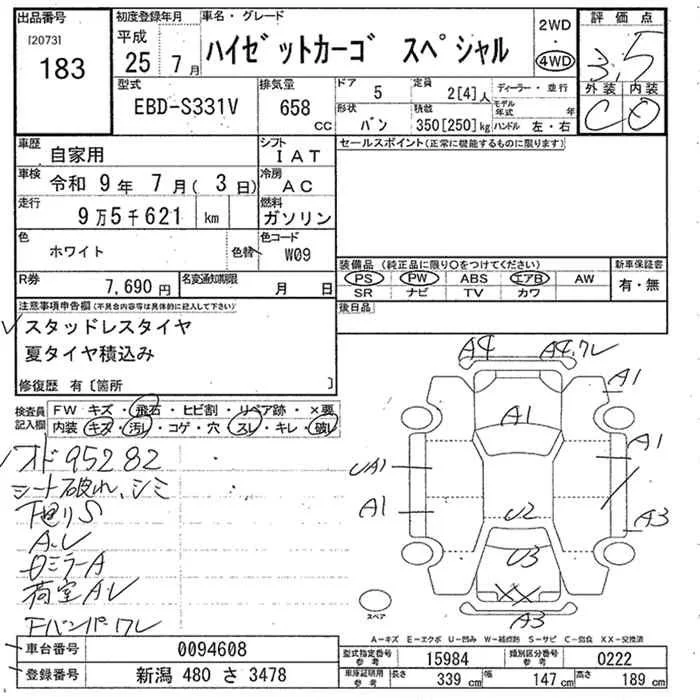 出品番号 初度登録年月 車名・グレード 2WD ・ 4WD 評価点
[2073] 183 平成 25年 7月 ハイゼットカーゴ スペシャル 3.5
型式 排気量 ドア 定員 ディーラー・並行 外装 内装
EBD-S331V 658 CC 5 2[4]人 モデル年式 年 C C
形状 積載 ハンドル 左・右
バン 350[250]kg
車歴 自家用 シフト IAT セールスポイント(正常に機能するものに限ります)
車検 令和 9年 7月(3日) 冷房 AC
走行 9万5千621 km 燃料 ガソリン
色 ホワイト 色替 色コード W09
装備品 (純正品に限り○をつけてください) 新車保証書
PS PW ABS エアB AW 有・無
SR ナビ TV カワ
R券 7,690円 名変通知期限 月 日
後日品
注意事項申告欄(不具合内容等は具体的に記入して下さい)
スタッドレスタイヤ
夏タイヤ積込み
修復歴 有〔箇所 〕
検査員記入欄 FW キズ・飛石・ヒビ割・リペア跡・×要
内装 キズ・汚レ・コゲ・穴・スレ・キレ・破レ
A4 A4.ワレ
A1
A1
A1
UA1
A1
A3
U2
U3
XX
A3
スペア
オド95282
シート破れ、シミ
下廻りS
A.レ
ロミラーA
荷室Aレ
Fバンパワレ
A-キズ E-エクボ U-凹み W-補修跡 S-サビ C-腐食 XX-交換済
車台番号 0094608
登録番号 新潟 480 さ 3478
型式指定番号 参考 15984 類別区分番号 参考 0222
車庫証明用 参考 長さ 339 cm 幅 147 cm 高さ 189 cm